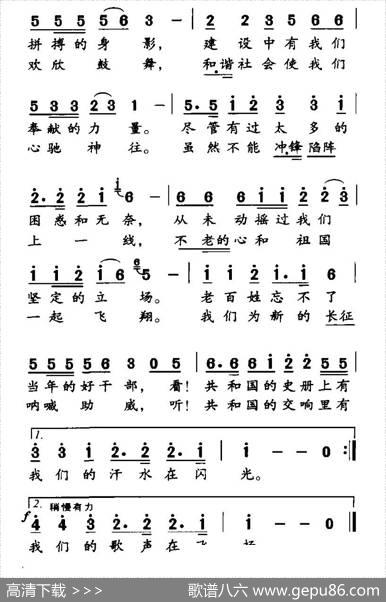 5 5 5 5 5 6 3 – | 2 2 3 5 3 5 5 5
拼搏的身影，建设中有我们
欢欣鼓舞，和谐社会使我们
5 3 3 2 3 1 – | 5. 5 i 2 3 3 i
奉献的力量。尽管有过太多的
心驰神往。虽然不能冲锋陷阵
2. 2 2 i 6 – | 6 6 i i 2 2 3
困惑和无奈，从未动摇过我们
上一线，不老的心和祖国
i i 2 i 6 5 – | i i 2 i. i 6
坚定的立场。老百姓忘不了
一起飞翔。我们为新的长征
5 5 5 5 6 3 0 5 | 6. 6 i 2 2 5 5
当年的好干部，看！共和国的史册上有
呐喊助威，听！共和国的交响里有
1.
3 3 i 2. 2 2. i | i – – 0 :||
我们的汗水在闪光。
2. 稍慢有力
f 4 4 3 2. 2 2. i | i – – 0
我们的歌声在
高清下载 >>>
歌谱八六 www.gepu86.com